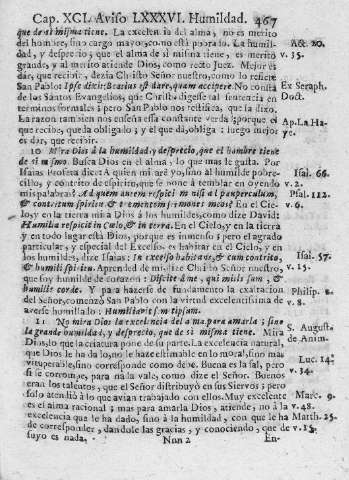 Cap. XCI. Aviso LXXXVI. Humildad. 467
que de si misma tiene. La excelencia del alma, no es merito
del hombre, sino cargo mayor, como está ponderado. La humil-
dad, y desprecio, que el alma de si misma tiene, es merito
grande, y al merito atiende Dios, como recto Juez. Mejor es
dar, que recibir, dezia Christo Señor nuestro, como lo refiere
San Pablo: Ipse dixit: Beatius est dare, quam accipere. No consta
de los Santos Evangelios, que Christo digesse tal sentencia en
terminos formales; pero San Pablo nos testifica, que la dixo.
La razon tambien nos enseña essa constante verdad; porque el
que recibe, queda obligado; y el que dá, obliga: luego mejor
es dar, que recibir.
10 Mira Dios á la humildad, y desprecio, que el hombre tiene
de si mismo. Busca Dios en el alma, lo que mas le gusta. Por
Isaias Profeta dice: A quien miraré yo, sino al humilde pobre-
cillo, y contrito de espiritu, que se pone á temblar en oyendo
mis palabras? Ad quem autem respiciam nisi ad pauperculum,
& contritum spiritu & trementem sermones meos? En el Cie-
lo, y en la tierra mira Dios á los humildes, como dize David:
Humilia respicit in Cœlo, & in terra. En el Cielo, y en la tierra
y en todo lugar está Dios, porque es inmenso; pero el agrado
particular, y especial del Excelso, es habitar en el Cielo, y en
los humildes, dize Isaias: In excelso habitavit, & cum contrito,
& humili spiritu. Aprended de mi, dize Christo Señor nuestro,
que soy humilde de corazon: Discite á me, qui mitis sum, &
humilis corde. Y para hazerse de fundamento la exaltacion
del Señor, comenzó San Pablo con la virtud excelentissima de
averse humillado: Humiliavit semetipsum.
11 No mira Dios la excelencia del alma para amarla; sino
la grande humildad, y desprecio, que de si misma tiene. Mira
Dios, lo que la criatura pone de su parte. La excelencia natural,
que Dios le ha dado, no le haze estimable en lo moral, sino mas
vituperable, sino corresponde como debe. Buena es la sal, pero
si se corrompe, para nada vale, como dize el Señor. Buenos
eran los talentos, que el Señor distribuyó en sus Siervos; pero
solo atendió á lo que avian trabajado con ellos. Muy excelente
es el alma racional; mas para amarla Dios, atiende, no á la
excelencia que le ha dado, sino á la humildad, con que le ha
de corresponder, dandole las gracias, y conociendo, que de
suyo es nada.
Nnn 2 En-
Act. 20.
v. 35.
Ex Seraph.
Doct.
Ap. La Ha-
ye.
Isai. 66.
v. 2.
Psal. 112.
v. 6.
Isai. 57.
v. 15.
Philip. 2.
v. 8.
S. August.
de Anim.
Luc. 14.
v. 34.
Marc. 9.
v. 48.
Matth. 25.
v. 15.